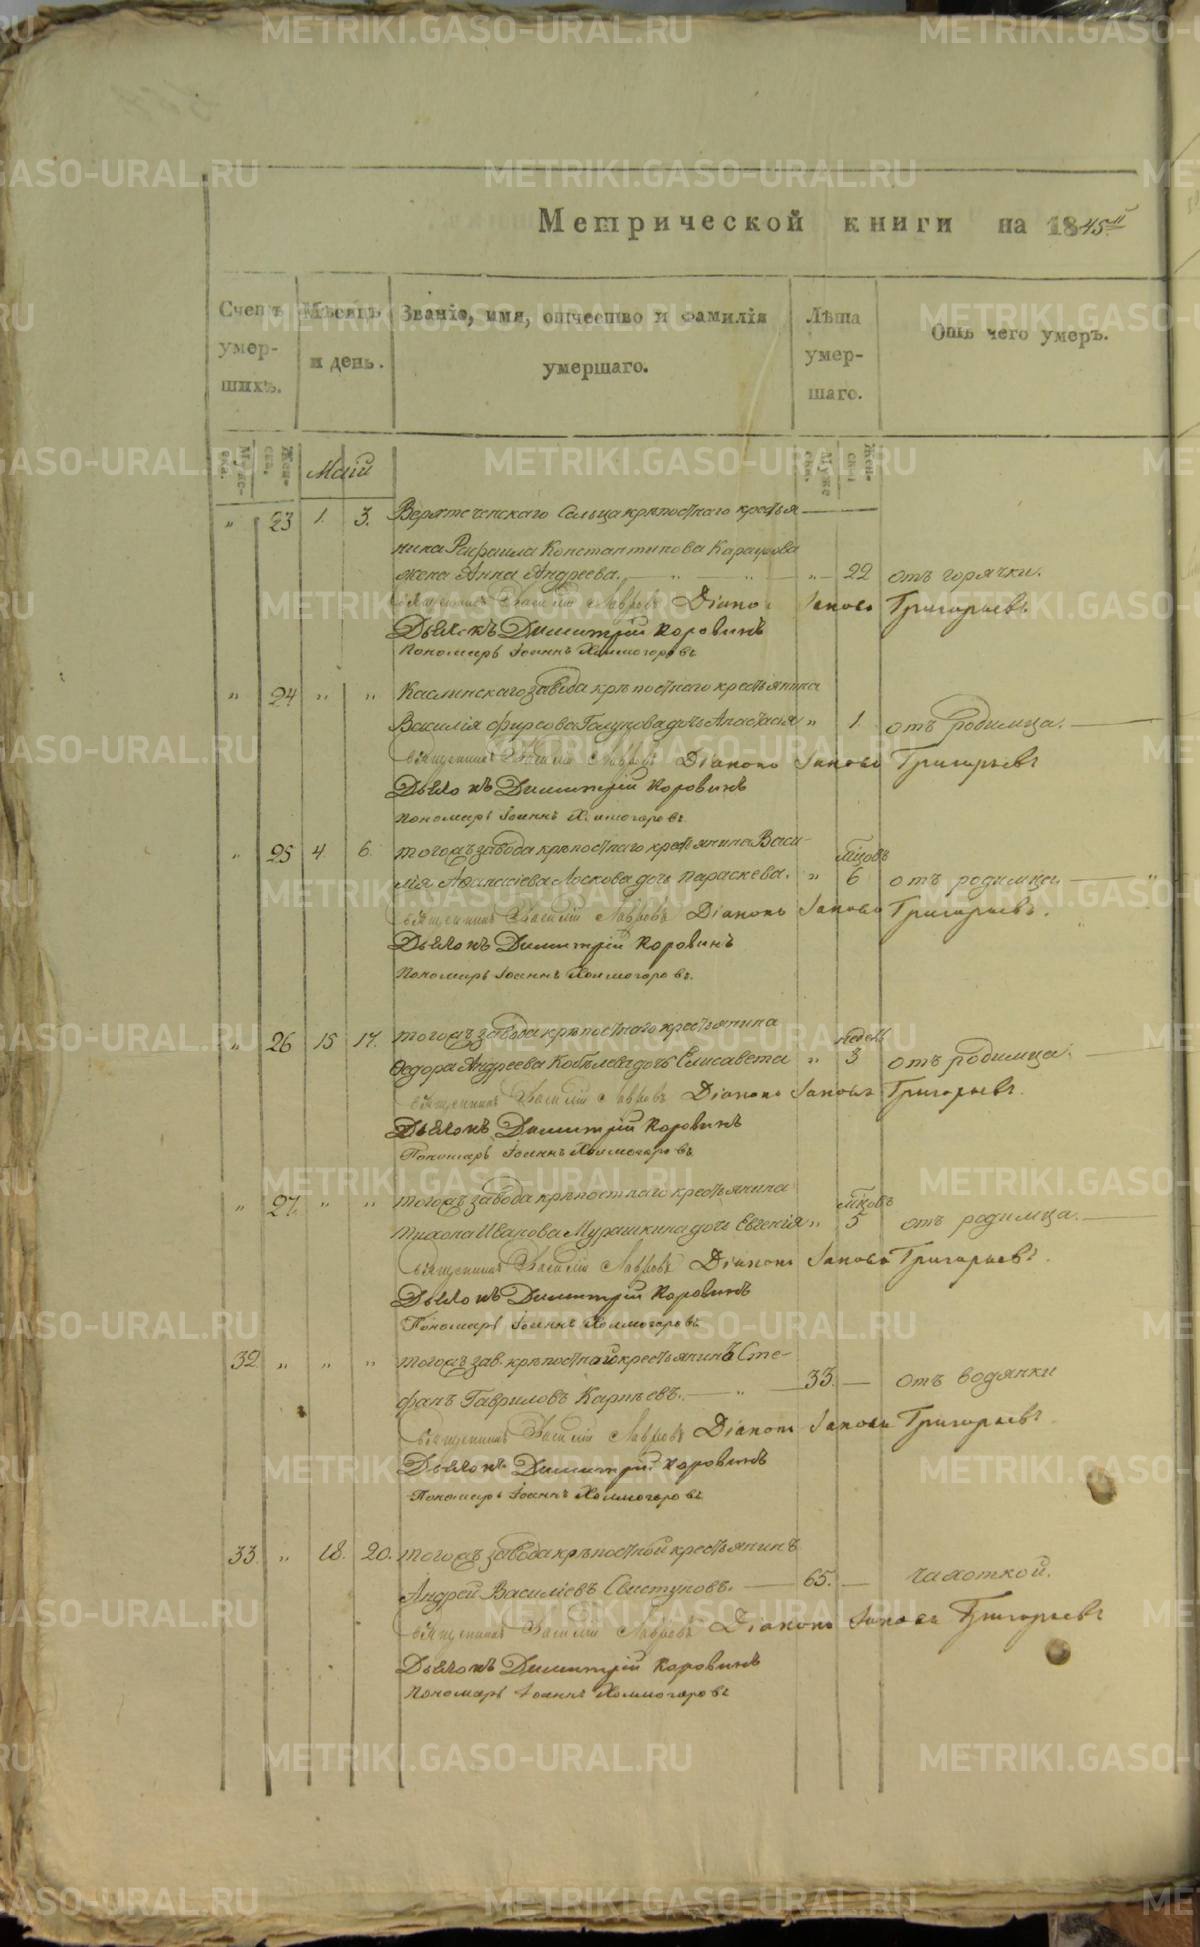 Метрической книги на 1845й
Счетъ умер-шихъ.
Мѣсяцъ и день.
Званіе, имя, отчество и фамилія умершаго.
Лѣта умер-шаго.
Отъ чего умеръ.
Муже-ска. Жен-ска. Маій Муже-ска. Жен-ска.
" 23 1. 3. Верхтеченскаго Сельца крѣпостнаго крестья
нина Рафаила Константинова
жена Анна Андреева. " " " 22 отъ горячки.
Священникъ Василій Лавровъ Діаконъ Іаковъ Григорьевъ
Дьячокъ Димитрій Коровинъ
Пономарь Іоаннъ Холмогоровъ
" 24 " " Каслинскаго завода крѣпостнаго крестьянина
Василія Фирсова Голунова дочь Анастасія " 1. отъ родимца.
Священникъ Василій Лавровъ Діаконъ Іаковъ Григорьевъ
Дьячокъ Димитрій Коровинъ
Пономарь Іоаннъ Холмогоровъ
" 25 4. 6. тогожъ завода крѣпостнаго крестьянина Васи- мѣсцовъ
лія Аѳанасіева Лоскова дочь Параскева. " 6 отъ родимца. "
Священникъ Василій Лавровъ Діаконъ Іаковъ Григорьевъ.
Дьячокъ Димитрій Коровинъ
Пономарь Іоаннъ Холмогоровъ.
" 26 15 17. тогожъ завода крѣпостнаго крестьянина недель
Ѳедора Андреева Кобелева дочь Елисавета " 3 отъ родимца.
Священникъ Василій Лавровъ Діаконъ Іаковъ Григорьевъ.
Дьячокъ Димитрій Коровинъ
Пономарь Іоаннъ Холмогоровъ
" 27. " " тогожъ завода крѣпостнаго крестьянина мѣсцовъ
Тихона Иванова Мурашкина дочь Евгенія " 5 отъ родимца.
Священникъ Василій Лавровъ Діаконъ Іаковъ Григорьевъ.
Дьячокъ Димитрій Коровинъ
Пономарь Іоаннъ Холмогоровъ
32 " " " тогожъ зав. крѣпостной крестьянинъ Сте-
фанъ Гавриловъ Карпѣевъ. " 33. отъ водянки
Священникъ Василій Лавровъ Діаконъ Іаковъ Григорьевъ
Дьячокъ Димитрій Коровинъ
Пономарь Іоаннъ Холмогоровъ
33. " 18. 20. тогожъ завода крѣпостной крестьянинъ
Андрей Василіевъ Свистуновъ. 65. чахоткой.
Священникъ Василій Лавровъ Діаконъ Іаковъ Григорьевъ
Дьячокъ Димитрій Коровинъ
Пономарь Іоаннъ Холмогоровъ
METRIKI.GASO-URAL.RU